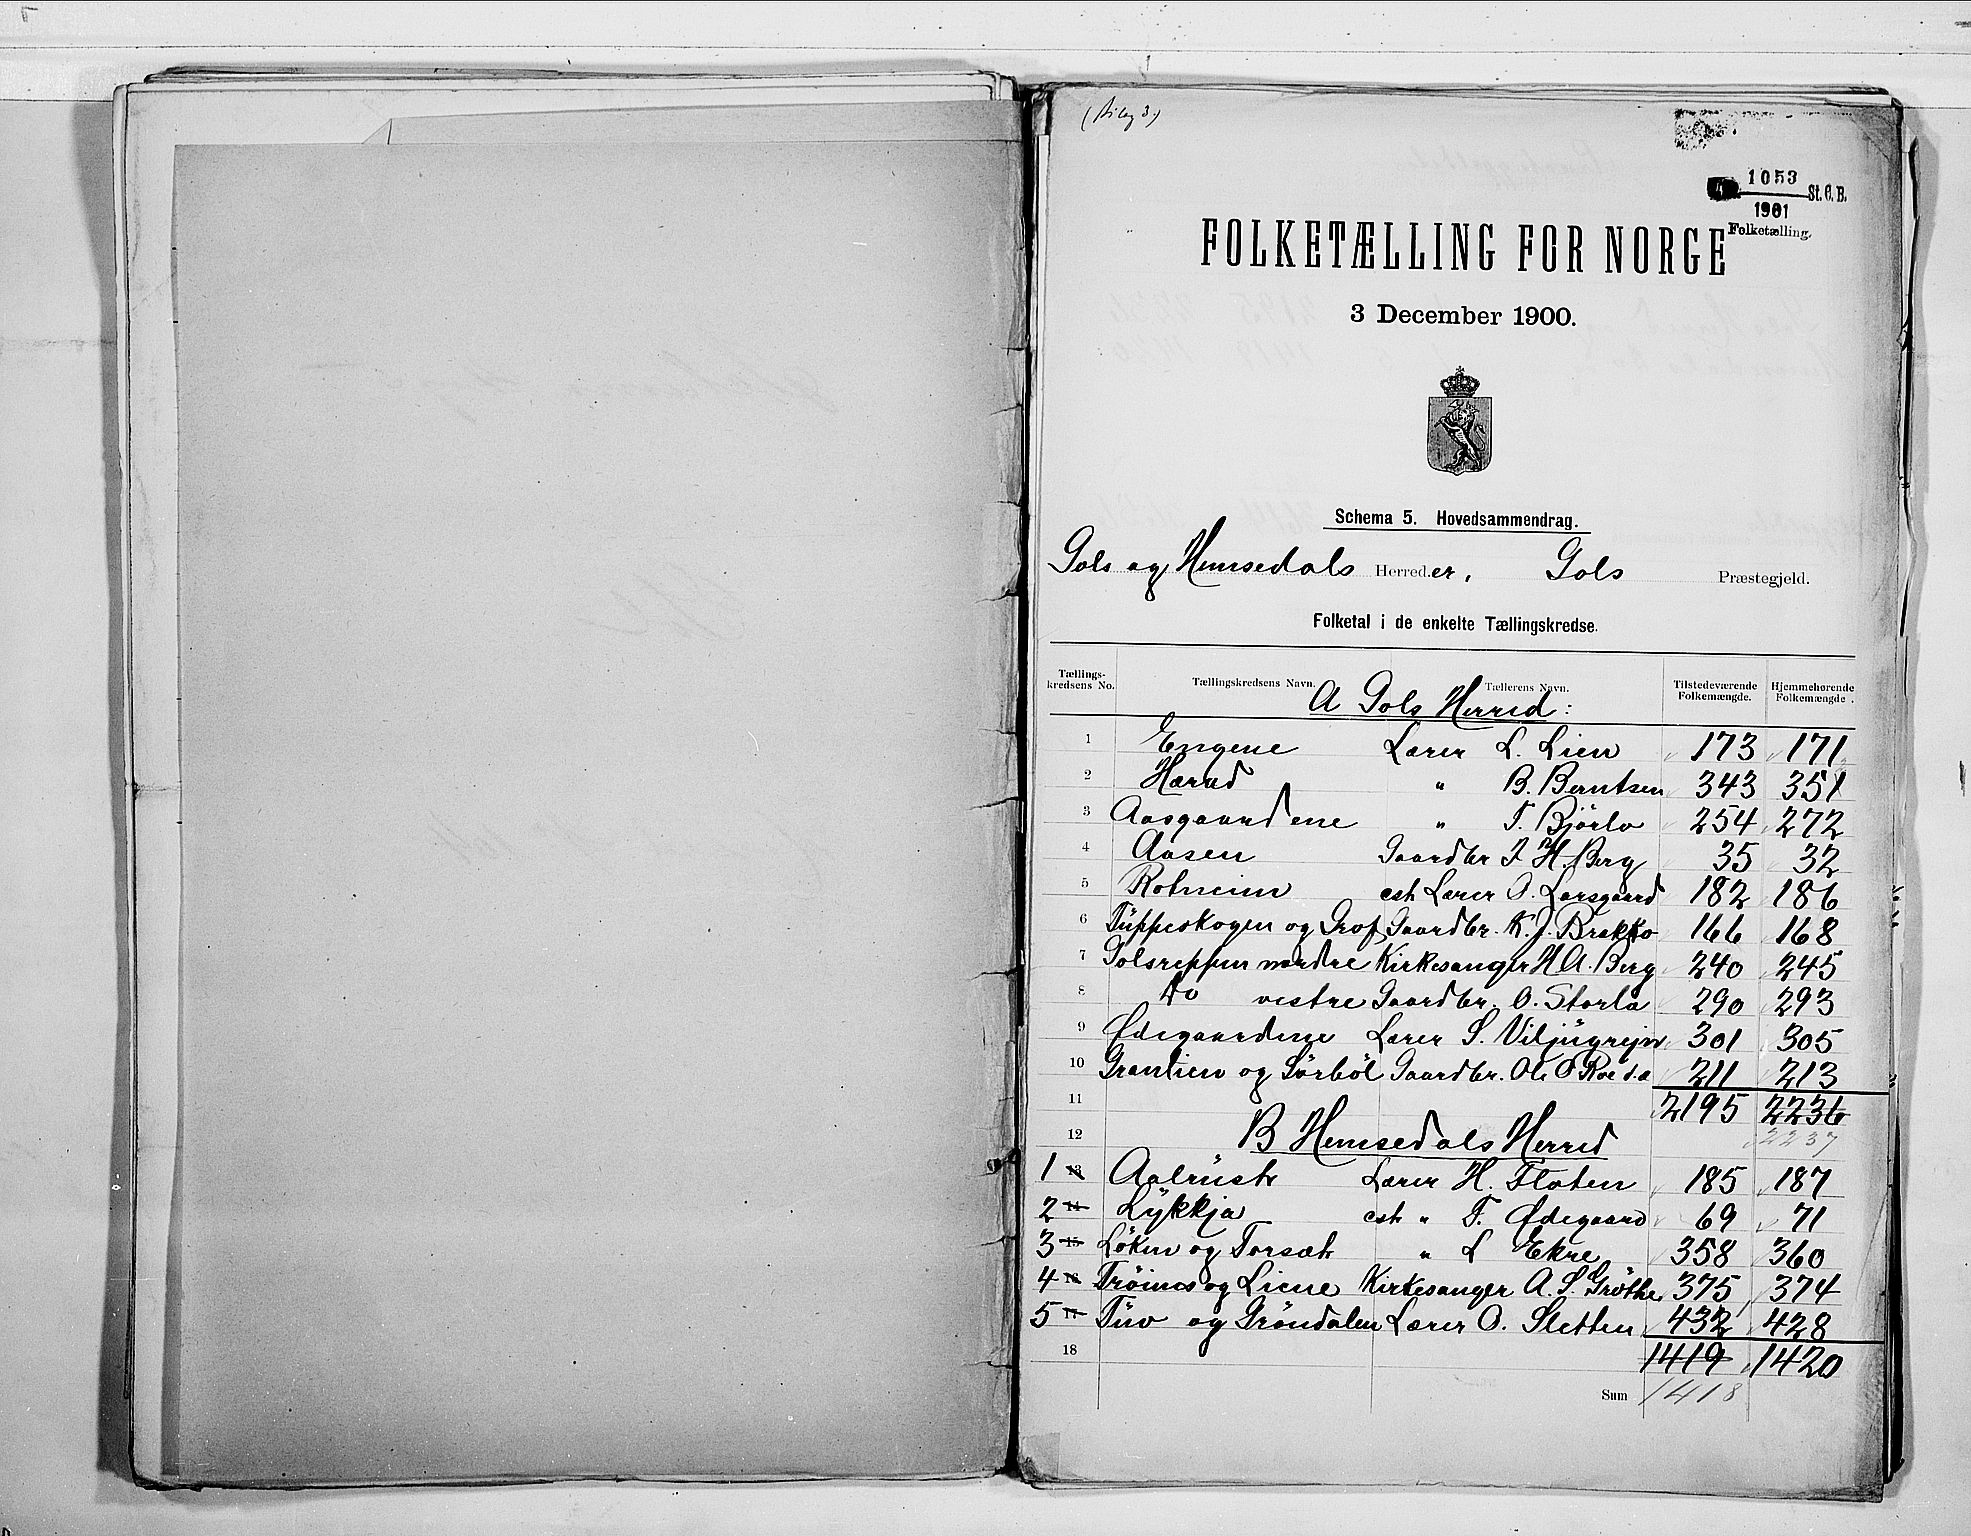 (Bilag 3)
1053
1901
St. C. B.
Folketælling.
FOLKETÆLLING FOR NORGE
3 December 1900.
Schema 5. Hovedsammendrag.
Gols og Hemsedals Herreder, Gols Præstegjeld.
Folketal i de enkelte Tællingskredse.
Tællings-kredsens No. Tællingskredsens Navn. Tællerens Navn. Tilstedeværende Folkemængde. Hjemmehørende Folkemængde.
A Gols Herred:
1 Engene Lærer L. Lien 173 171
2 Herad " B. Berntsen 343 351
3 Aasgaardene " T. Bjørlo 254 272
4 Aasen Gaardbr J. H. Berg 35 32
5 Rotneim cst. Lærer O. Larsgaard 182 186
6 Tüppeskogen og Grof Gaardbr. K. J. Brakko 166 168
7 Golsreppen nordre Kirkesanger H. A. Berg 240 245
8 do vestre Gaardbr. O. Storla 290 293
9 Ødegaardene Lærer S. Viljügrejn 301 305
10 Granlien og Sørböl Gaardbr. Ole O Roe d.æ 211 213
11 2195 2236
2237
12 B Hemsedals Herred
1 13 Aalrüst Lærer H. Flaten 185 187
2 14 Lykkja cst. " T. Ødegaard 69 71
3 15 Løken og Torset " L Ekre 358 360
4 16 Trøim og Liene Kirkesanger A. S. Grøthe 375 374
5 17 Tüv og Grøndalen Lærer O. Sletten 432 428
18 1419 1420
Sum 1418